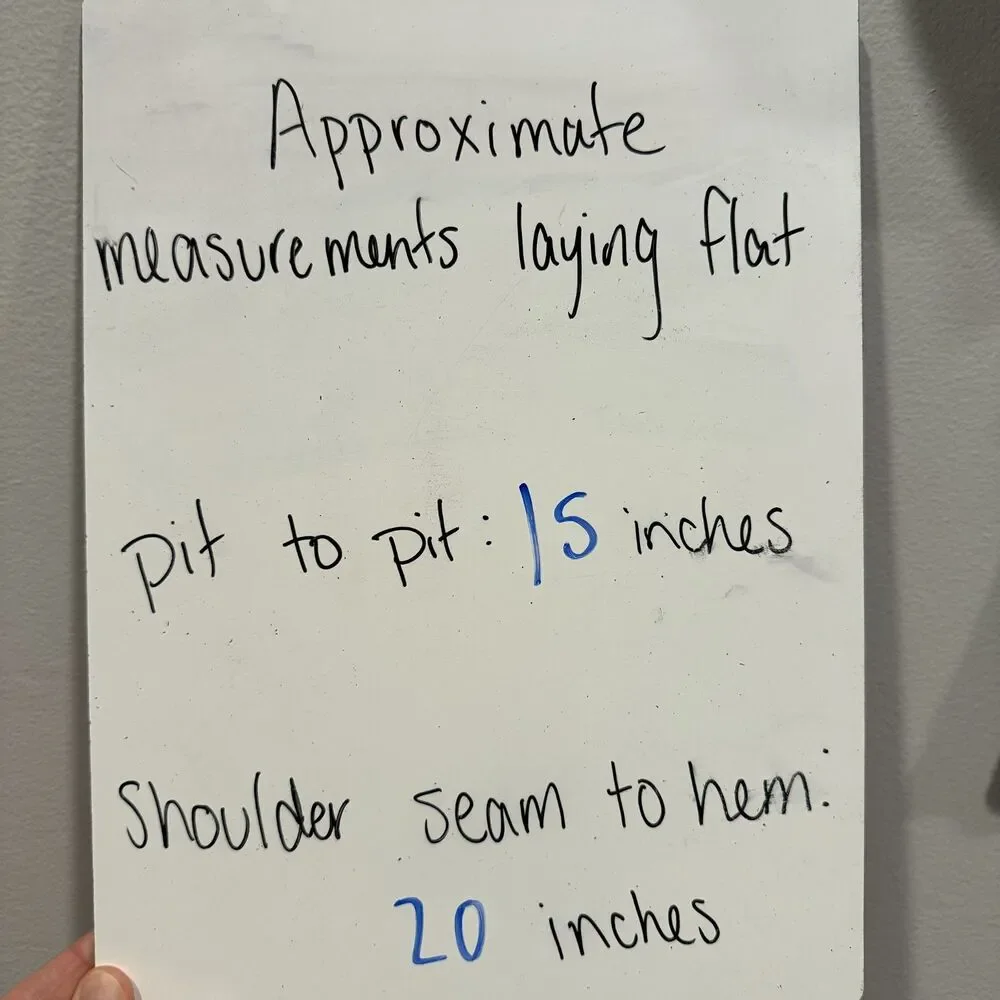 Approximate
measurements laying flat
pit to pit: 15 inches
Shoulder seam to hem:
20 inches